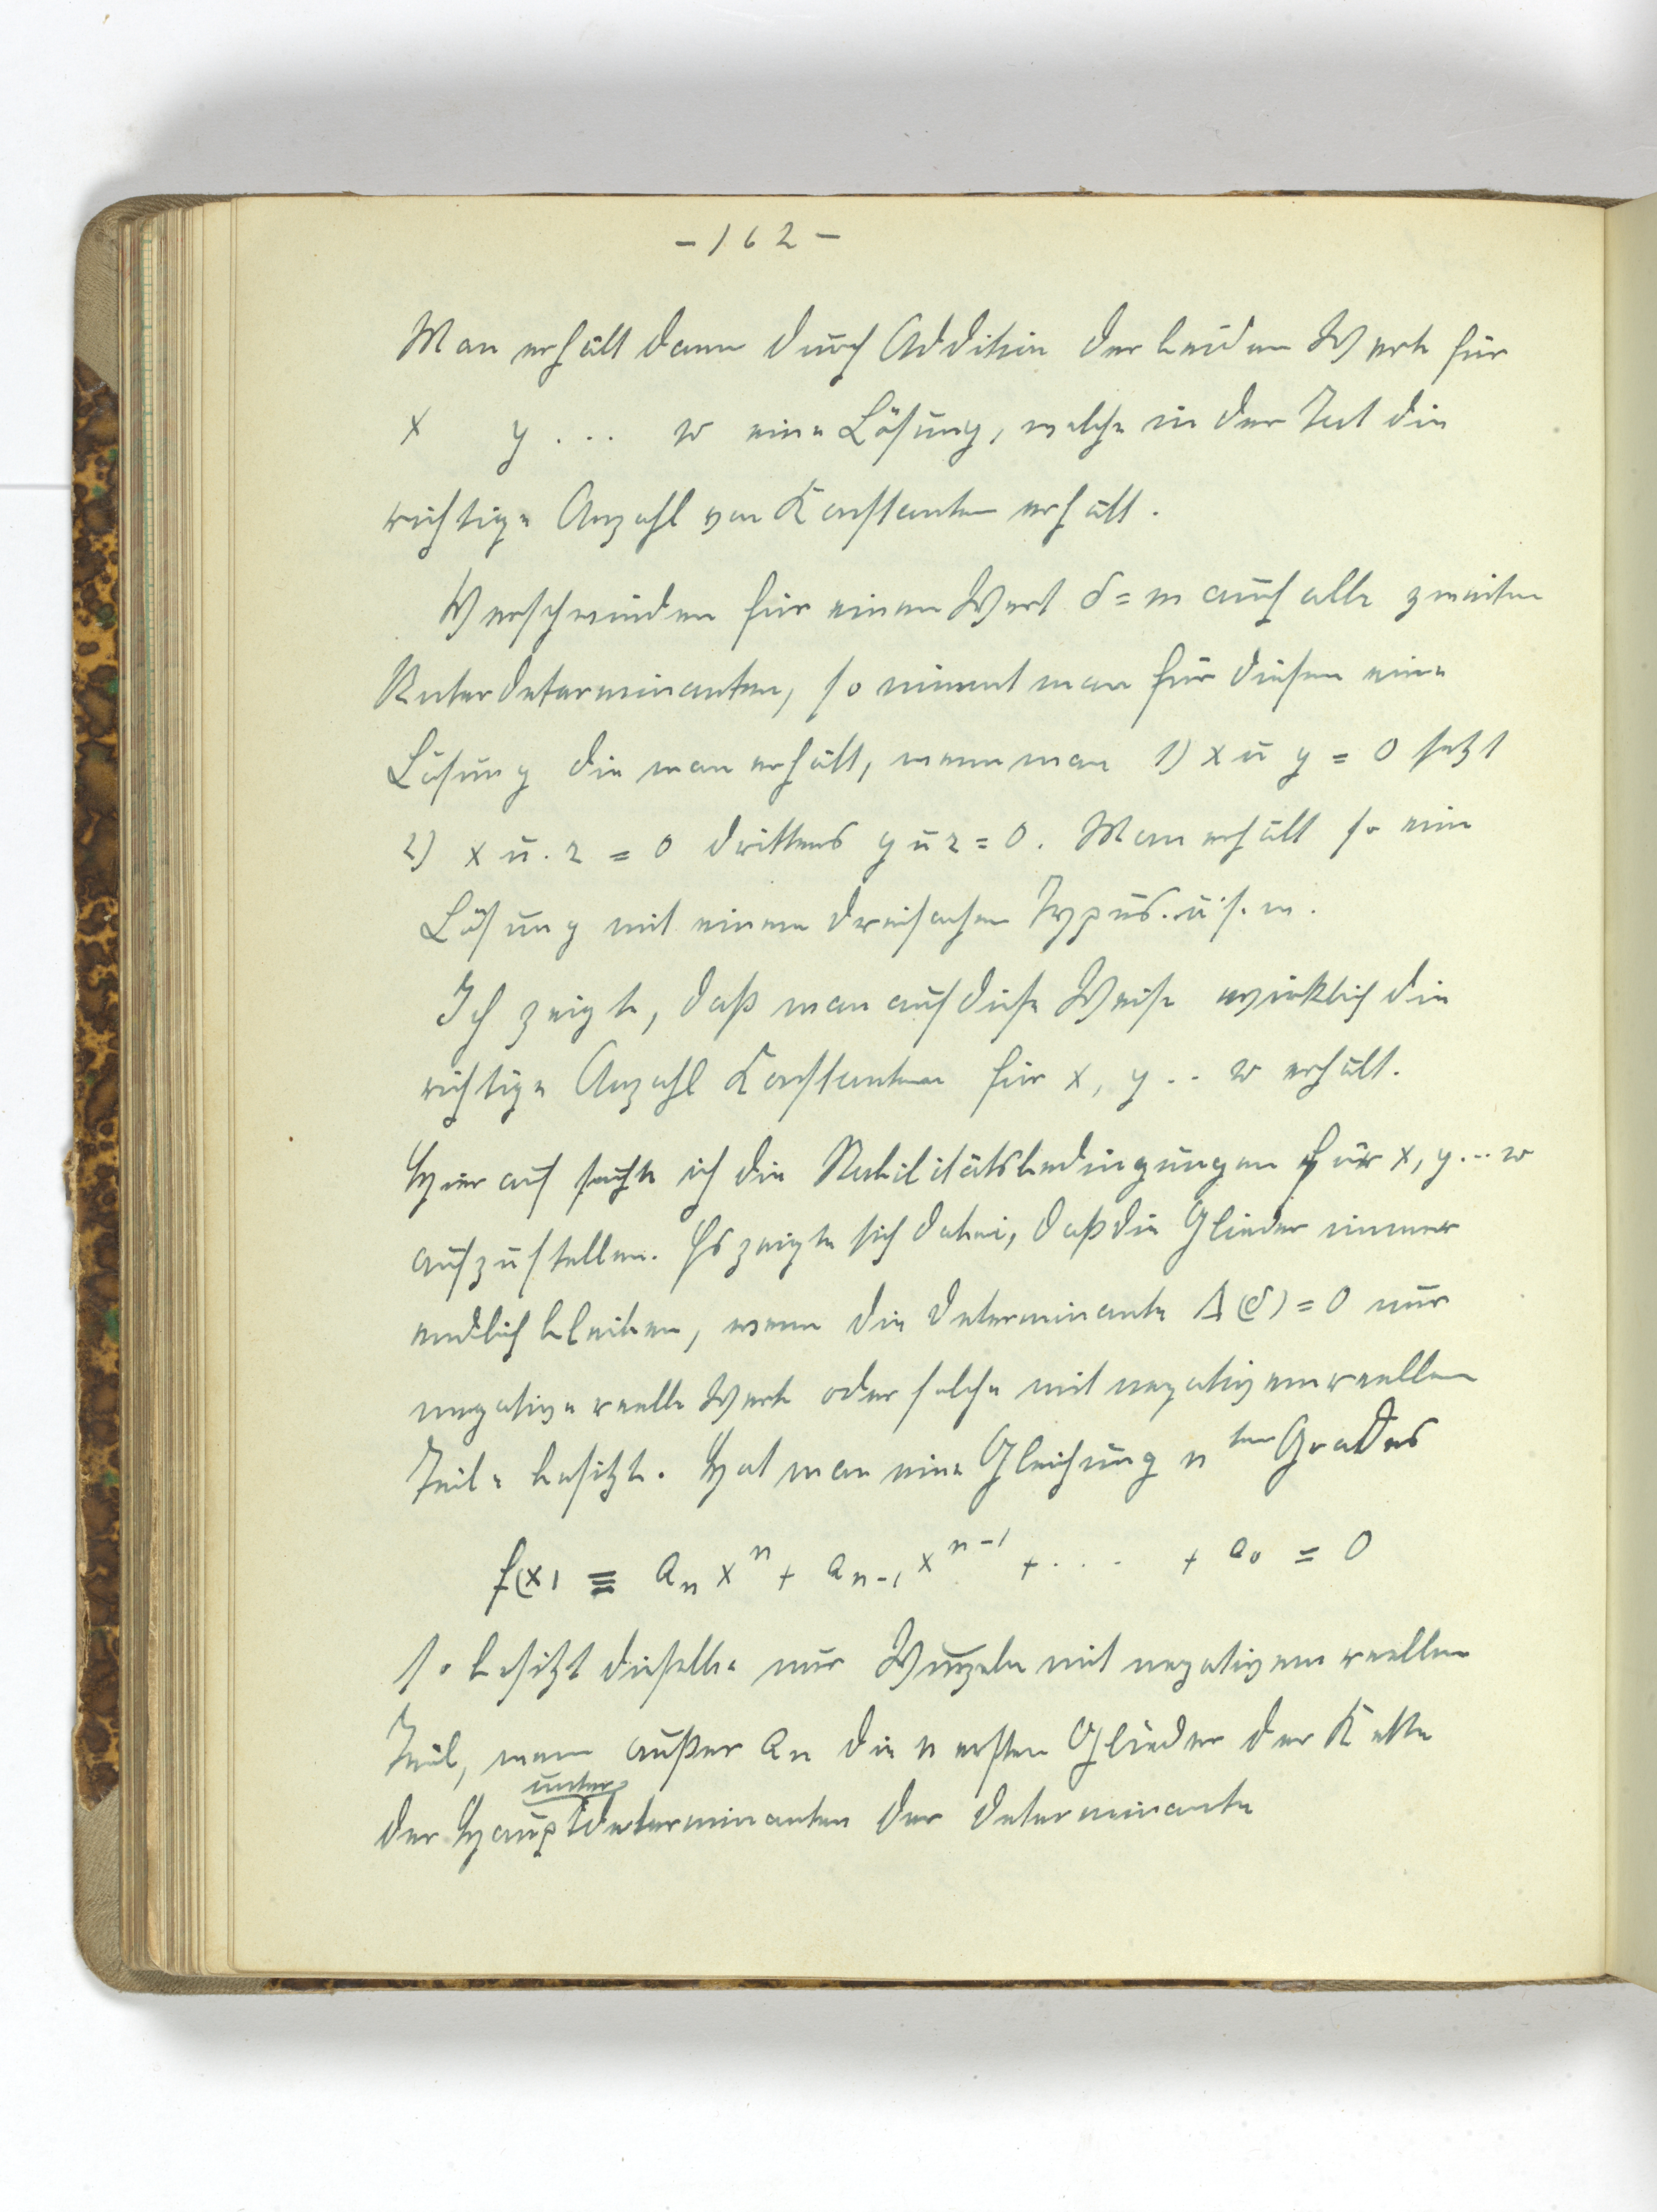 - 162 -
Man erhält dann durch Addition der beiden Werte für
x y ... w eine Lösung, welche in der Tat die
richtige Anzahl von Konstanten erhält.
Verschwinden für einen Wert δ = m auch alle zweiten
Unterdeterminanten, so nimmt man für diesen eine
Lösung die man erhält, wenn man 1) x u y = 0 setzt
2) x u. z = 0 drittens y u z = 0. Man erhält so eine
Lösung mit einem dreifachen Typus. u. s. w.
Ich zeigte, daß man auf diese Weise wirklich die
richtige Anzahl Konstanten für x, y .. w erhält.
Hierauf suchte ich die Stabilitätsbedingungen für x, y ... w
aufzustellen. Es zeigte sich dabei, daß die Glieder immer
endlich bleiben, wenn die Determinante Δ(δ) = 0 nur
negative reelle Werte oder solche mit negativem reellen
Teile besitzt. Hat man eine Gleichung n ten Grades
f(x) ≡ aₙ xⁿ + aₙ₋₁ xⁿ⁻¹ + .... + a₀ = 0
so besitzt dieselbe nur Wurzeln mit negativem reellen
Teil, wenn außer aₙ die n ersten Glieder der Kette
unter
der Hauptdeterminanten der Determinante